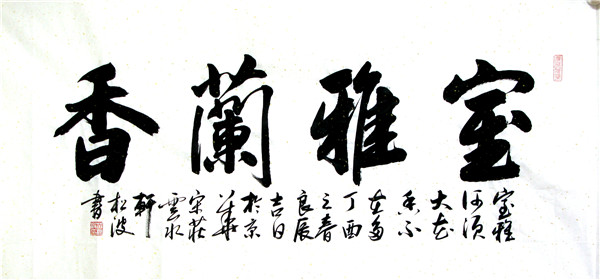 室雅蘭香
室雅
何須
大花
香不
在多
丁酉
之春
良辰
吉日
於京
華
宋莊
雲水
軒
松波
書